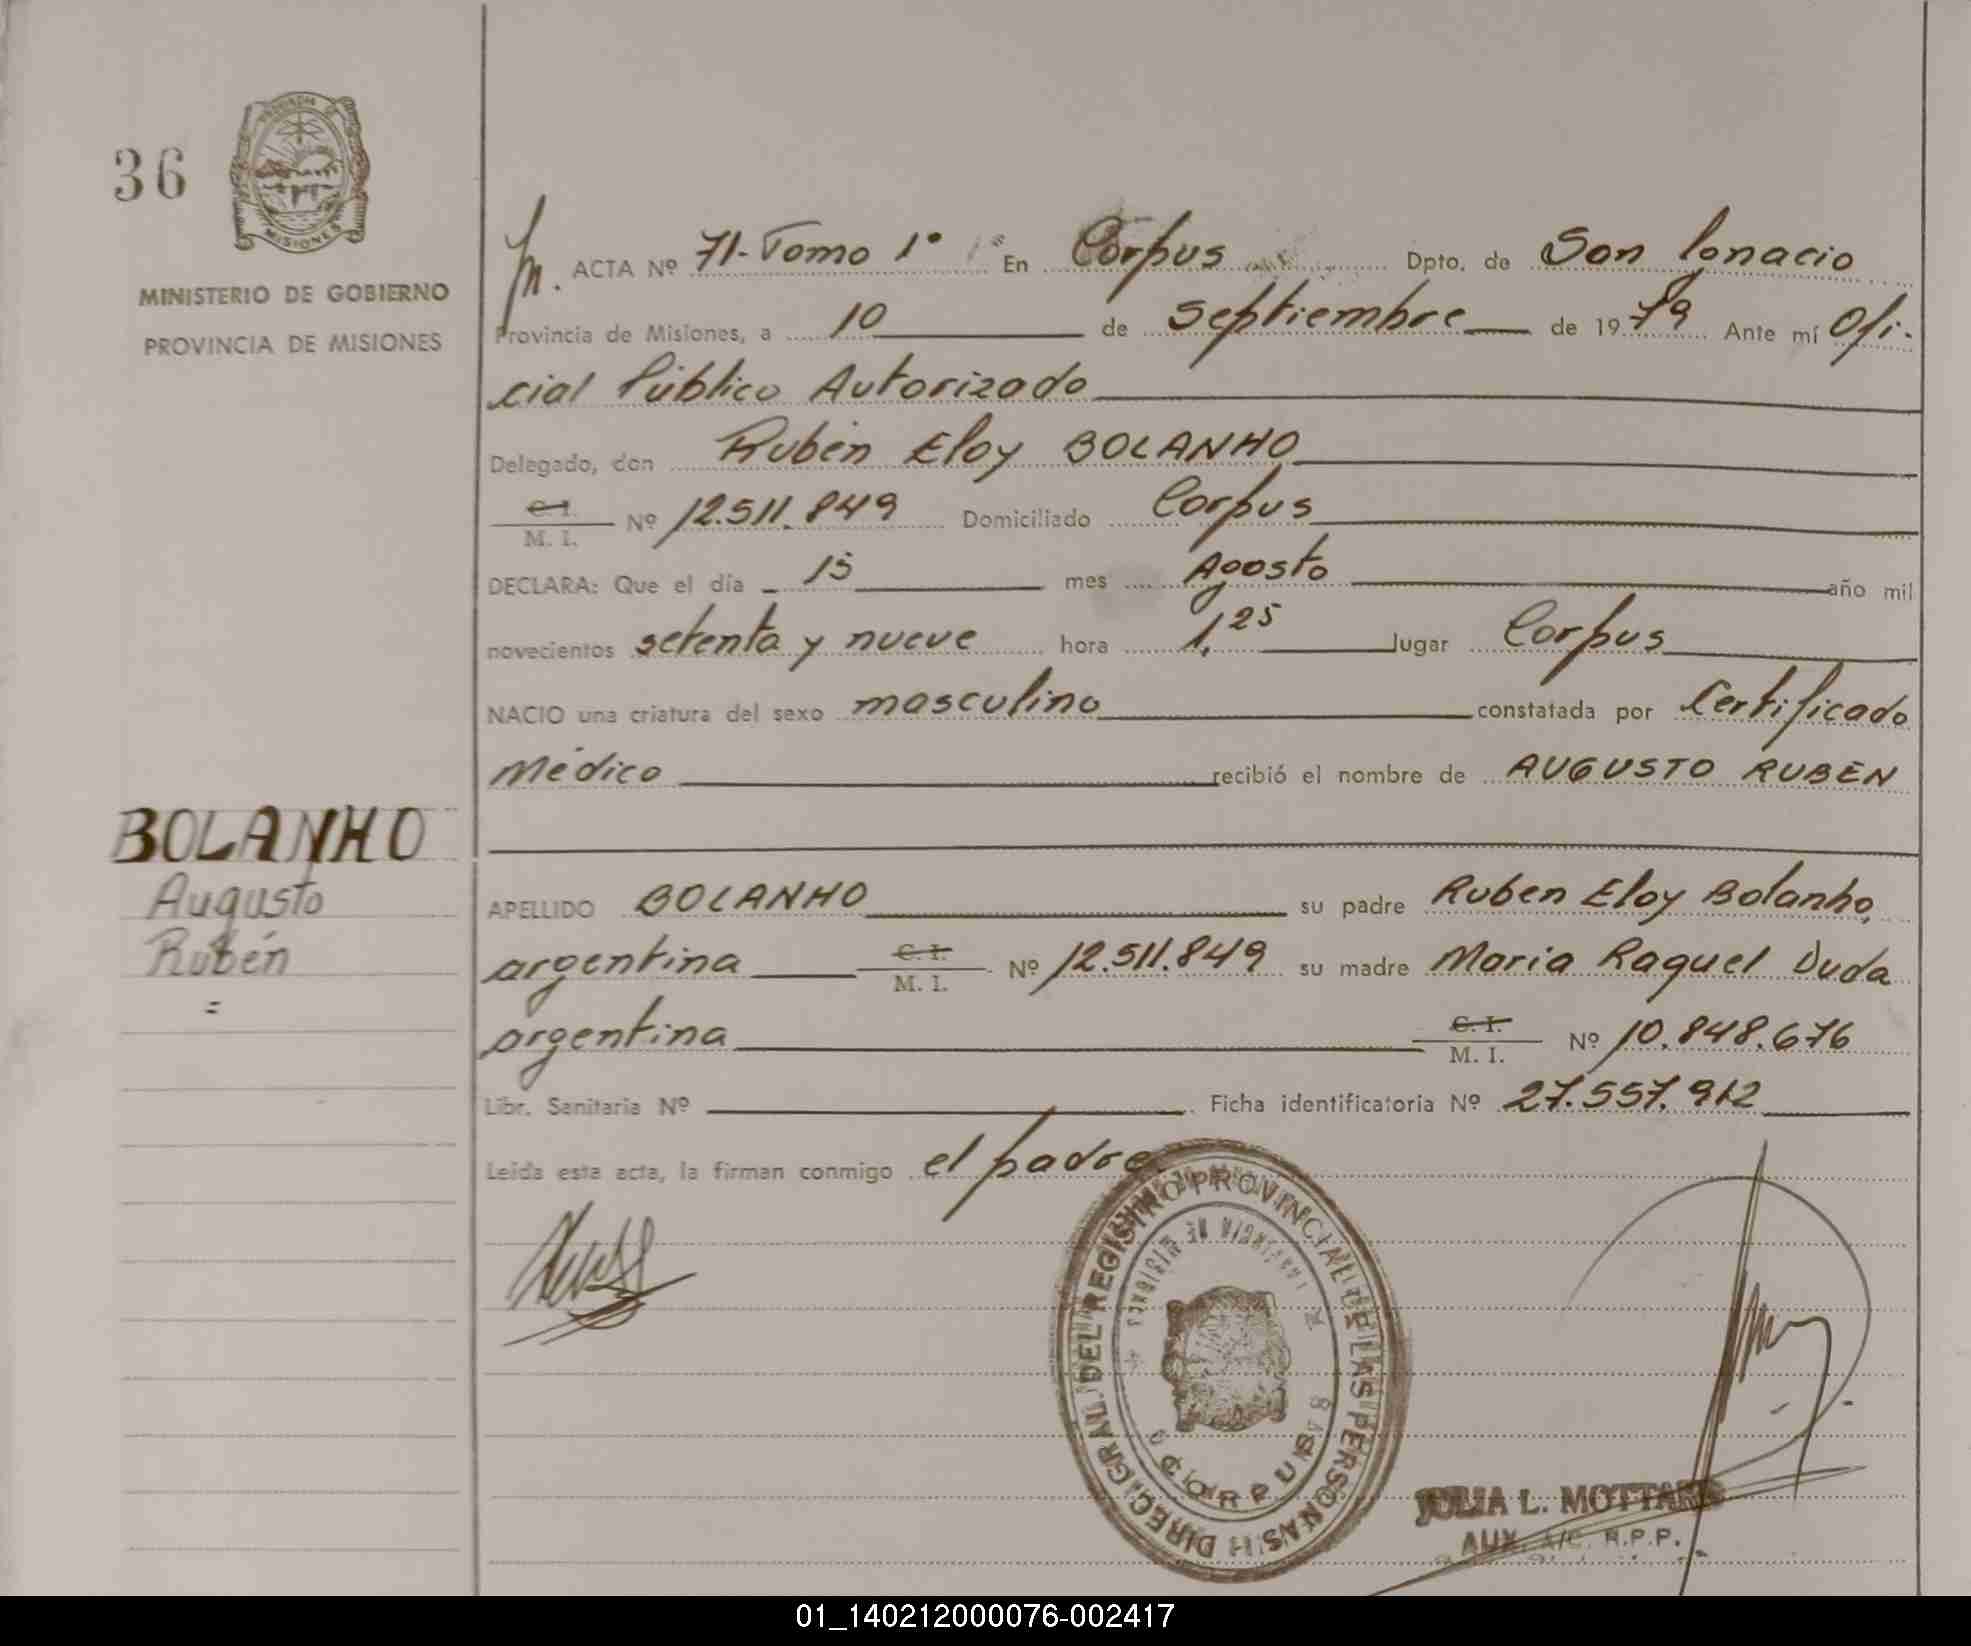 36
MISIONES
MINISTERIO DE GOBIERNO
PROVINCIA DE MISIONES
ACTA Nº 71- Tomo 1º En Corpus Dpto. de San Ignacio
Provincia de Misiones, a 10 de Septiembre de 1979 Ante mí Ofi-
cial Público Autorizado
Delegado, don Rubén Eloy BOLANHO
C. I.
M. I. Nº 12.511.849 Domiciliado Corpus
DECLARA: Que el día 15 mes Agosto año mil
novecientos setenta y nueve hora 1,25 lugar Corpus
NACIO una criatura del sexo masculino constatada por Certificado
Médico recibió el nombre de AUGUSTO RUBÉN
BOLANHO
Augusto
Rubén
=
APELLIDO BOLANHO su padre Ruben Eloy Bolanho,
argentina C. I.
M. I. Nº 12.511.849 su madre Maria Raquel Duda
argentina C. I.
M. I. Nº 10.848.676
Libr. Sanitaria Nº Ficha identificatoria Nº 27.557.912
Leída esta acta, la firman conmigo el padre
DIREC. GRAL. DEL REGISTRO PROVINCIAL DE LAS PERSONAS
PROVINCIA DE MISIONES
CORPUS
JULIA L. MOTTARI
AUX. A/C. R.P.P.
01_140212000076-002417